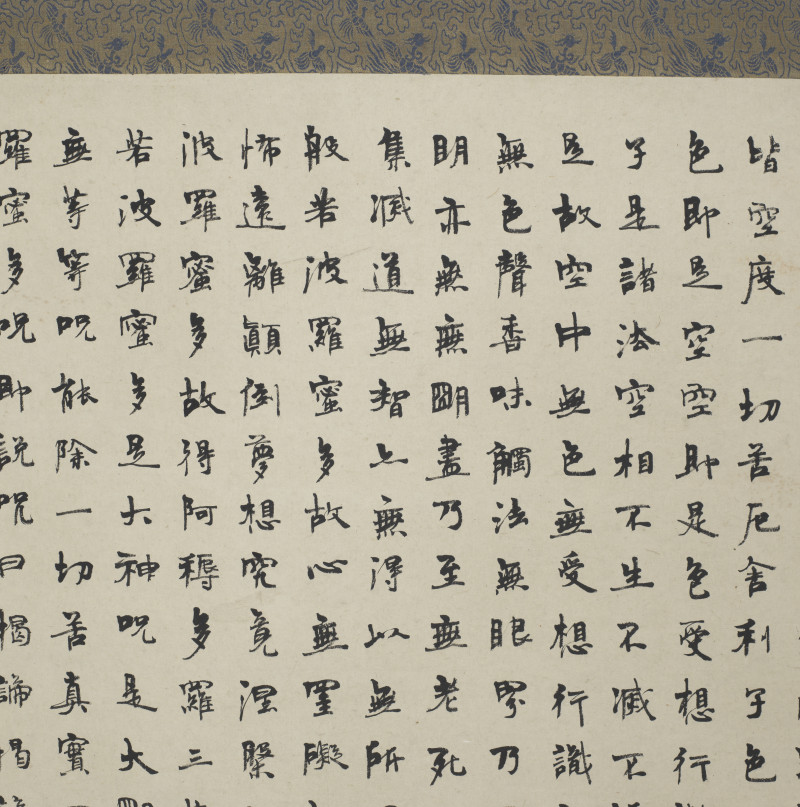 皆空度一切苦厄舍利子色
色即是空空即是色受想行
子是諸法空相不生不滅不
是故空中無色無受想行識
無色聲香味觸法無眼界乃
明亦無無明盡乃至無老死
集滅道無智亦無得以無所
般若波羅蜜多故心無罣礙
怖遠離顛倒夢想究竟涅槃
波羅蜜多故得阿耨多羅三
若波羅蜜多是大神呪是大
無等等呪能除一切苦真實
羅蜜多呪即說呪曰揭諦揭